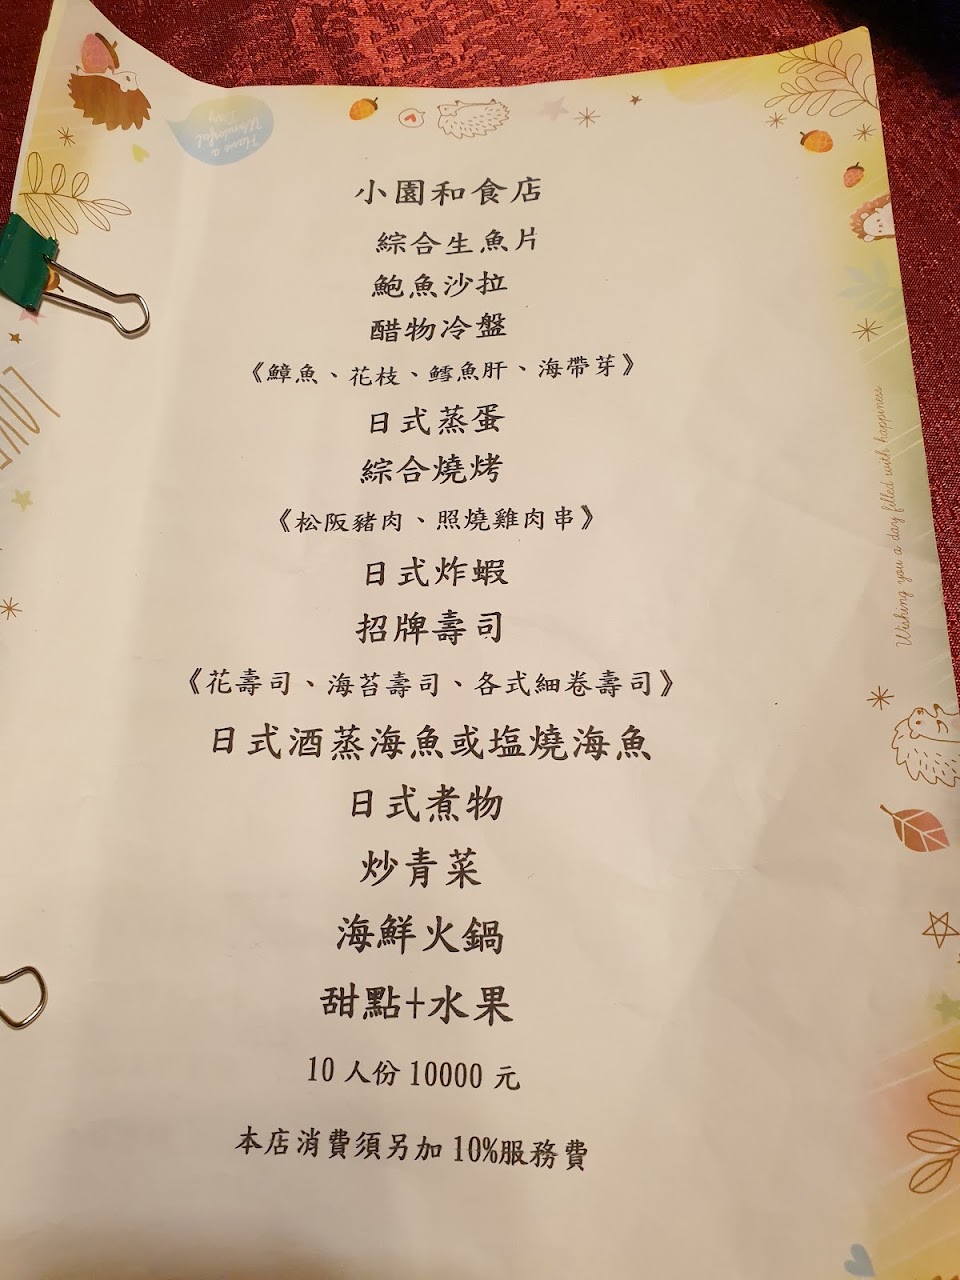 Have a
Wonderful
Day
小園和食店
綜合生魚片
鮑魚沙拉
醋物冷盤
《鱆魚、花枝、鱈魚肝、海帶芽》
日式蒸蛋
綜合燒烤
《松阪豬肉、照燒雞肉串》
日式炸蝦
招牌壽司
《花壽司、海苔壽司、各式細卷壽司》
日式酒蒸海魚或塩燒海魚
日式煮物
炒青菜
海鮮火鍋
甜點+水果
10 人份 10000 元
本店消費須另加 10%服務費
Wishing you a day filled with happiness
LOVE